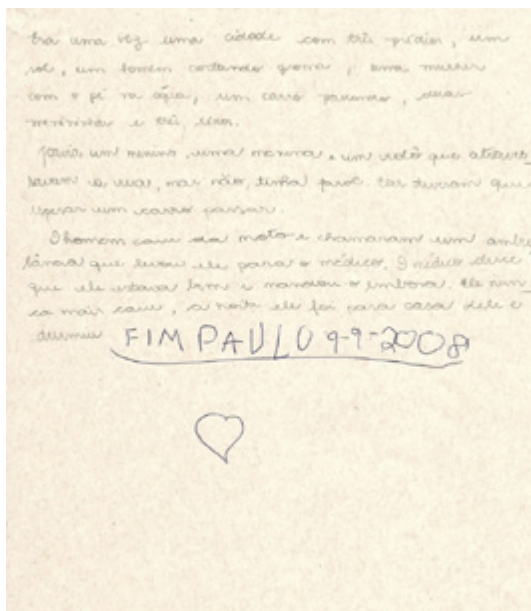 Era uma vez uma cidade com três prédios, um
sol, um homem cortando grama, uma mulher
com o pé na água, um carro parando, duas
menininhas e três
Havia um menino, uma menina e um que atraves_
savam a rua, mas não, tinha farol. Eles tiveram que
esperar um carro passar.
O homem caiu da moto e chamaram um ambu_
lância que levou ele para o médico. O médico disse
que ele estava bem e mandou o embora. Ele nun_
ca mais caiu, a noite ele foi para casa dele e
dormiu FIM PAULO 9-9-2008